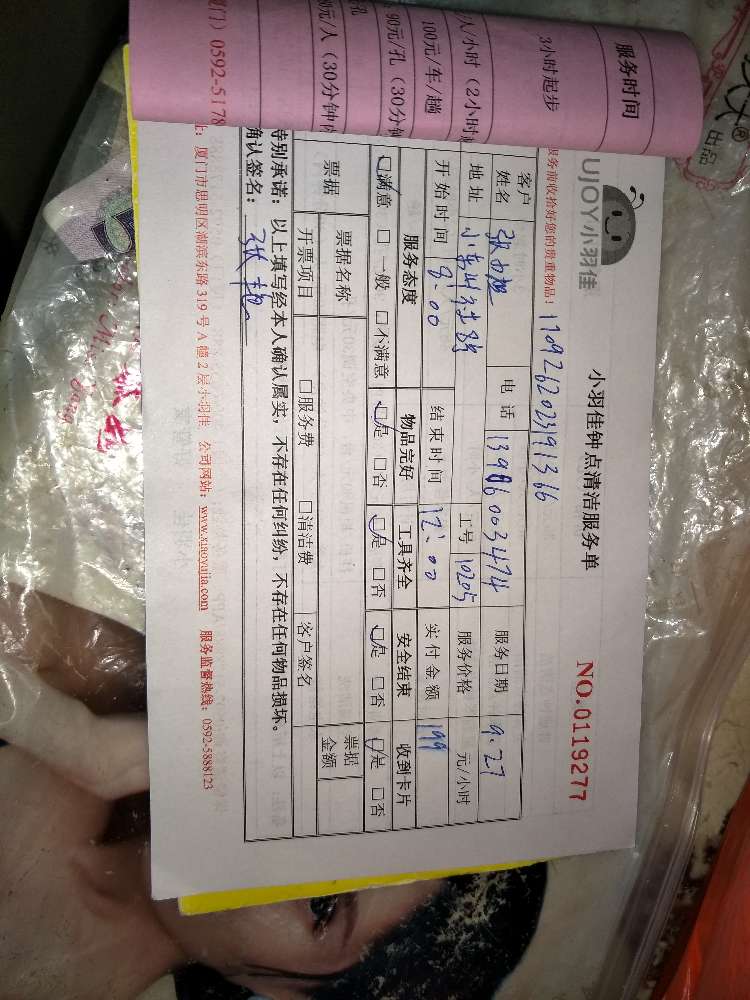 服务时间
3小时起步
人/小时（2小时
100元/车/趟
90元/孔（30分钟
孔
0元/人（30分钟内
门）0592-5178
出品
UJOY小羽佳
小羽佳钟点清洁服务单
NO.0119277
服务前收拾好您的贵重物品！
1709262023191366
客户姓名
电话 13986003474
服务日期 9.27
地址
工号 10205
服务价格 元/小时
开始时间 8:00
结束时间 12:00
实付金额 199
服务态度 物品完好 工具齐全 安全结束 收到卡片
□满意 □一般 □不满意 □是 □否 □是 □否 □是 □否 □是 □否
票据 票据名称 票据金额
开票项目 □服务费 □清洁费 客户签名
特别承诺：以上填写经本人确认属实，不存在任何纠纷，不存在任何物品损坏。
确认签名：
厦门市思明区湖滨东路319号A幢2层小羽佳 公司网站：www.xiaoyujia.com 服务监督热线：0592-5888123